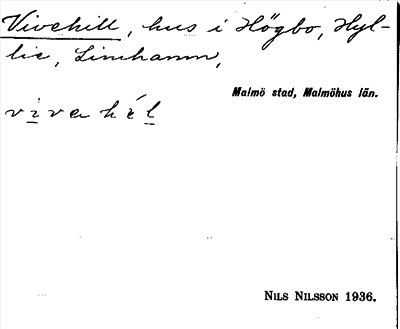 Vivehill, hus i Högbo, Hyl-
lie, Limhamn,
Malmö stad, Malmöhus län.
NILS NILSSON 1936.